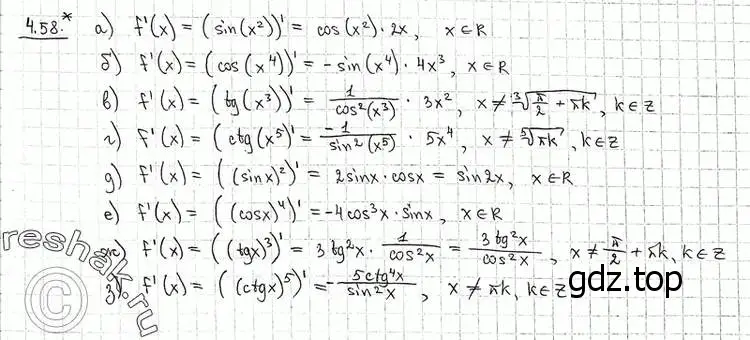 4.58.* а) f'(x) = (sin(x²))' = cos(x²) · 2x, x ∈ R
б) f'(x) = (cos(x⁴))' = -sin(x⁴) · 4x³, x ∈ R
в) f'(x) = (tg(x³))' = 1/cos²(x³) · 3x², x ≠ ∛(π/2 + πk), k ∈ Z
г) f'(x) = (ctg(x⁵)' = -1/sin²(x⁵) · 5x⁴, x ≠ ⁵√(πk), k ∈ Z
д) f'(x) = ((sinx)²)' = 2sinx · cosx = sin2x, x ∈ R
е) f'(x) = ((cosx)⁴)' = -4cos³x · sinx, x ∈ R
ж) f'(x) = ((tgx)³)' = 3tg²x · 1/cos²x = 3tg²x/cos²x, x ≠ π/2 + πk, k ∈ Z
з) f'(x) = ((ctgx)⁵)' = -5ctg⁴x/sin²x, x ≠ πk, k ∈ Z
gdz.top
reshak.ru
©